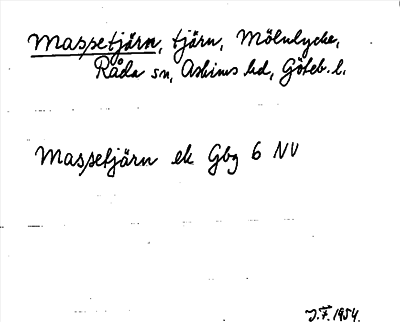 Massetjärn, tjärn, Mölnlycke,
Råda sn, Askims hd, Göteb. l.
Massetjärn ek Gbg 6 NV
J.F. 1954.